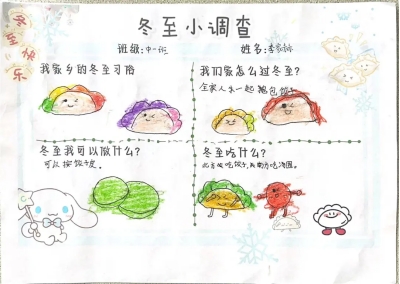 冬至快乐
冬至小调查
班级:中一班 姓名:
我家乡的冬至习俗
我们家怎么过冬至?
全家人一起 包饺子
冬至我可以做什么?
可以擀饺子皮。
冬至吃什么?
北方吃饺子,南方吃汤圆。